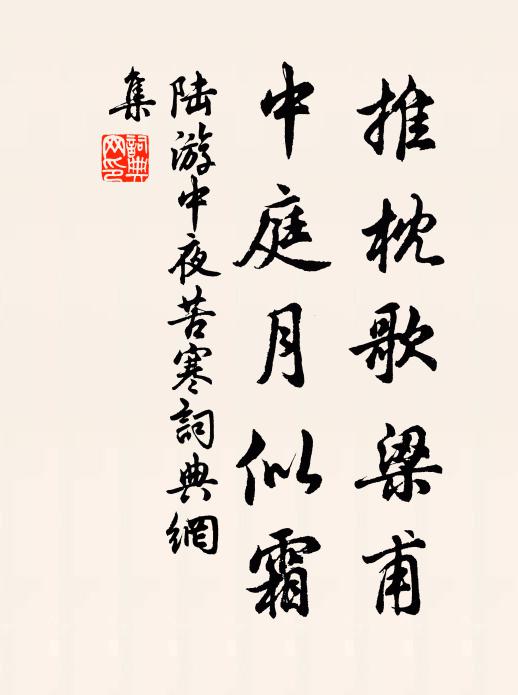 推枕歌梁甫
中庭月似霜
陆游中夜苦寒詞典網
集
詞典
网印